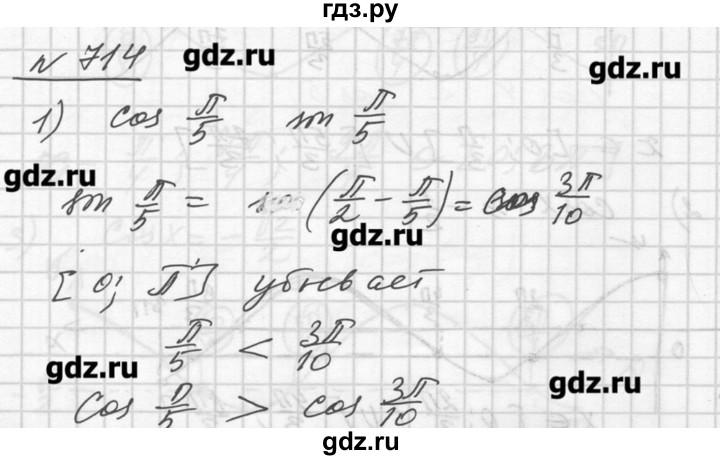 гдз.ру
№ 714
gdz.ru
gdz.ru
1) cos π/5 sin π/5
gdz.ru
sin π/5 = (π/2 - π/5) = cos 3π/10
gdz.ru
[0; π] убывает
π/5 < 3π/10
gdz.ru
gdz.ru
cos π/5 > cos 3π/10
gdz.ru